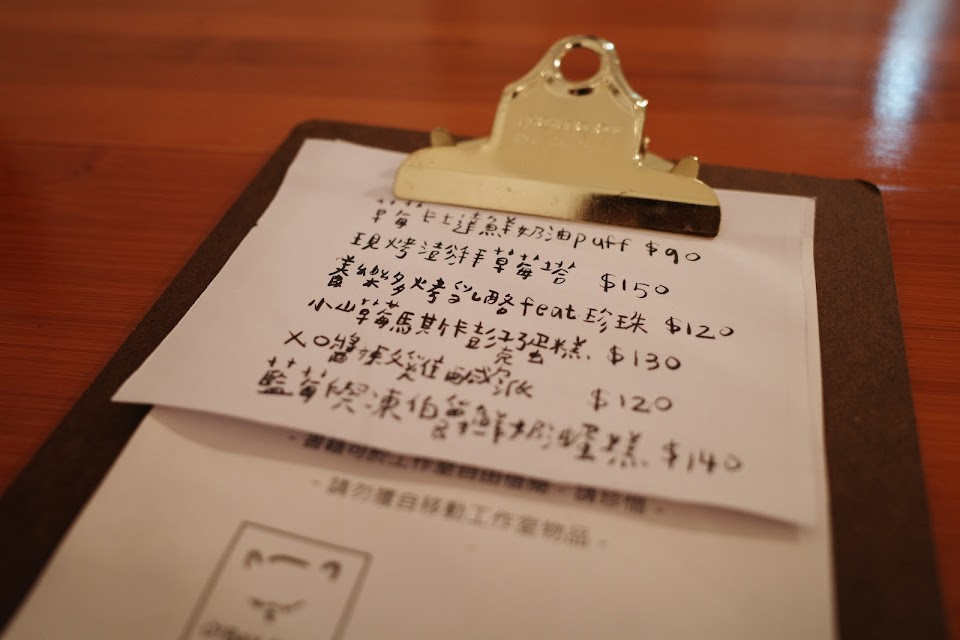 草莓卡士達鮮奶油puff $90
現烤澎湃草莓塔 $150
養樂多烤乳酪feat珍珠 $120
小山莓馬斯卡彭 蛋糕 $130
XO醬 雞鹹派 $120
藍莓 凍伯爵鮮奶 蛋糕 $140
- 書籍可於工作室自由借閱、請珍惜 -
- 請勿擅自移動工作室物品 -